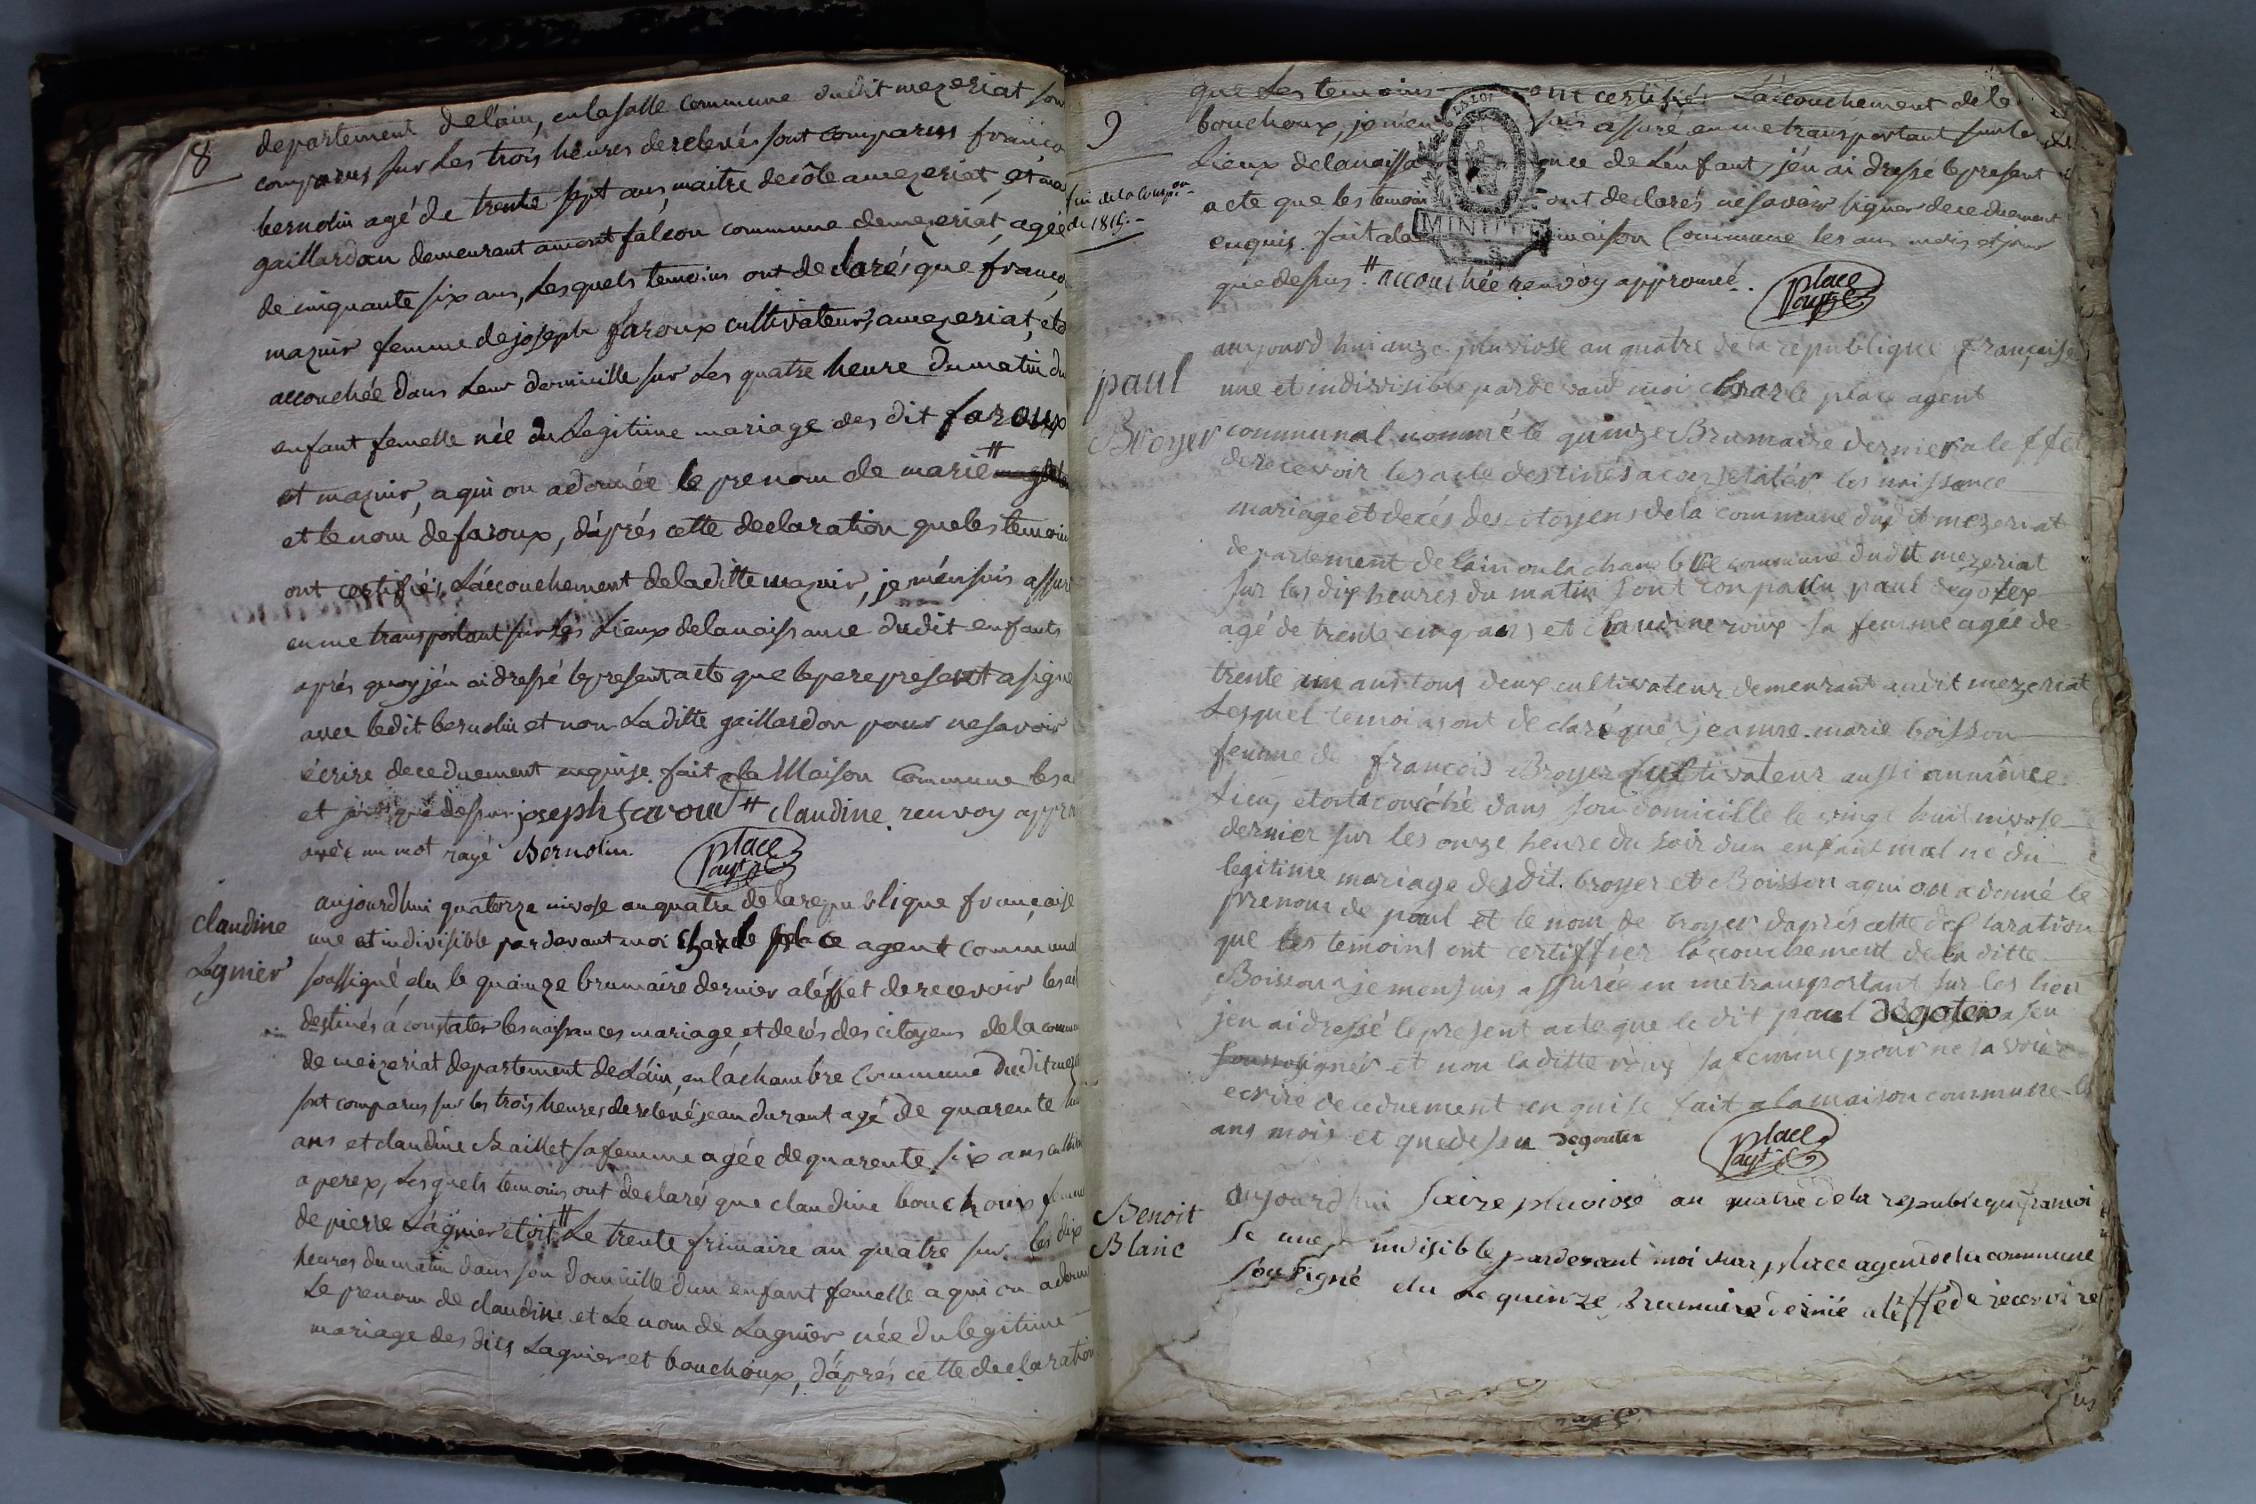 8
departement delain, enlasalle commune dudit mezeriat sont
comparus sur les trois heures derelevés sont comparus françoi
bernolin agé de trente sept ans, maitre decôle amezeriat, et ma
gaillardon demeurant amont falcon commune demezeriat, agée
de cinquante six ans, Lesquels temoins ont declarés que franço
maznir femme de joseph faroux cultivateur, amezeriat, eto
accouchée dans Leur domicille sur Les quatre heure dumatin du
enfant femelle née du Legitime mariage des dit faroux
et maznir, aqui on adonnée le prenom de marie #
et lenom defaroux, d'aprés cette declaration que les temoin
ont certifiés L'accouchement deladitte maznir, je m'ensuis assuré
en me transportant sur les Lieux delanaissance dudit enfants
aprés quoy j'én ai dressé lepresent acte que lepere present a signé
avec ledit bernolin et non Laditte gaillardon pour nesavoir
écrire deceduement enquise. fait a la Maison Commune les a
et jour que dessus joseph faroud # claudine. renvoy appro
avéc un mot rayé Bernolin.
place
agt
claudine
Lagnier
aujourdhui quatorze nivose an quatre delarepublique française
une et indivisible pardevant moi Charle place agent communal
soussigné, elu le quainze brumaire dernier aléffet de recevoir les act
destinés á constater les naissances mariage, et decés des citoyens delacommu
de meizeriat departement deLáin, enlachambre Commune Duditmeze
sont comparus sur les trois heures derelevé jean durant agé de quarente hui
ans et claudine Chaillet sa femme agée dequarente six ans cultiva
aperex, Lesquels temoins ont declarés que claudine bouchoux femme
de pierre Lagnier etoit # Le trente frimaire an quatre sur les dix
heures dumatin dans son domicille dun enfant femelle aqui on adonn
Le prenom de claudine et Le nom de Lagnier, née du legitime
mariage des dits Lagnier et bouchoux, d'áprés cette declaration
9
que Les temoins ont certifiés L'accouchement de la
bouchoux, je m'en suis assuré en me transportant sur le
Lieux delanaissa nce de L'enfant, j'én ai dressé lepresent
acte que les temoin ont declarés nesavoir signer deceduement
enquis. fait ala maison Commune les ans mois et jour
que dessus # accouchée renvoy approuvé.
place
agt
LA LOI
MINUTE
de 1815
paul
Broyer
aujourd hui onze pluviose an quatre de la république française
une et indivisible par devant moi charle place agent
communal nommé le quinze Brumaire dernier a leffet
de recevoir les acte destinés a constater les naissance
mariage et decés des citoyens de la commune dudit mezeriat
departement de lain en la chambre commune dudit mezeriat
sur les dix heures du matin sont conparu paul degotex
agé de trente cinq ans et claudine roux sa femme agée de
trente un ans tous deux cultivateur demeurant audit mezeriat
Lesquel temoins ont declaré que jeanne marie boisson
femme de francois Broyer cultivateur aussi au même
Lieu, etoit acouché dans son domicille le vingt huit nivose
dernier sur les onze heure du soir dun enfant mal né du
legitime mariage desdit broyer et Boisson aqui on a donné le
prenom de paul et le nom de broyer daprés cette declaration
que les temoins ont certiffier laccouchement de la ditte
Boisson je men suis assurée en me transportant sur les lieu
jen ai dressé le present acte que le dit paul Degotex a seu
signer et non laditte roux sa femme pour ne savoir
ecrire deceduement enquise fait a la maison commune les
ans mois et que dessu degoutex
place
agt
Benoit
Blanc
aujourd hui seize pluviose an quatre de la republique francoi
se une indisible pardevant moi char place agent de la commune
sousigné elu le quinze brumaire dernié a leffé de recevoire